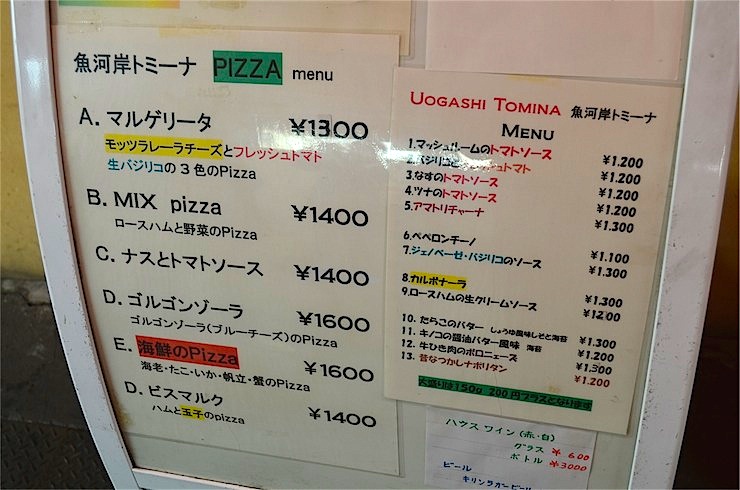 魚河岸トミーナ PIZZA menu
A. マルゲリータ ¥1300
モッツラレーラチーズとフレッシュトマト
生バジリコの3色のPizza
B. MIX pizza ¥1400
ロースハムと野菜のPizza
C. ナスとトマトソース ¥1400
D. ゴルゴンゾーラ ¥1600
ゴルゴンゾーラ(ブルーチーズ)のPizza
E. 海鮮のPizza ¥1600
海老・たこ・いか・帆立・蟹のPizza
D. ビスマルク ¥1400
ハムと玉子のpizza
UOGASHI TOMINA 魚河岸トミーナ
MENU
1.マッシュルームのトマトソース ¥1.200
2.バジリコとフレッシュトマト ¥1.200
3.なすのトマトソース ¥1.200
4.ツナのトマトソース ¥1.200
5.アマトリチャーナ ¥1.300
6.ペペロンチーノ ¥1.100
7.ジェノベーゼ・バジリコのソース ¥1.300
8.カルボナーラ ¥1.300
9.ロースハムの生クリームソース ¥1200
10. たらこのバター しょうゆ風味しそと海苔 ¥1.300
11. キノコの醤油バター風味 海苔 ¥1.200
12. 牛ひき肉のボロニェーズ ¥1.300
13. 昔なつかしナポリタン ¥1.200
大盛りは150g 200円プラスとなります
ハウスワイン(赤・白)
グラス ¥600
ボトル ¥3000
ビール
キリンラガービール